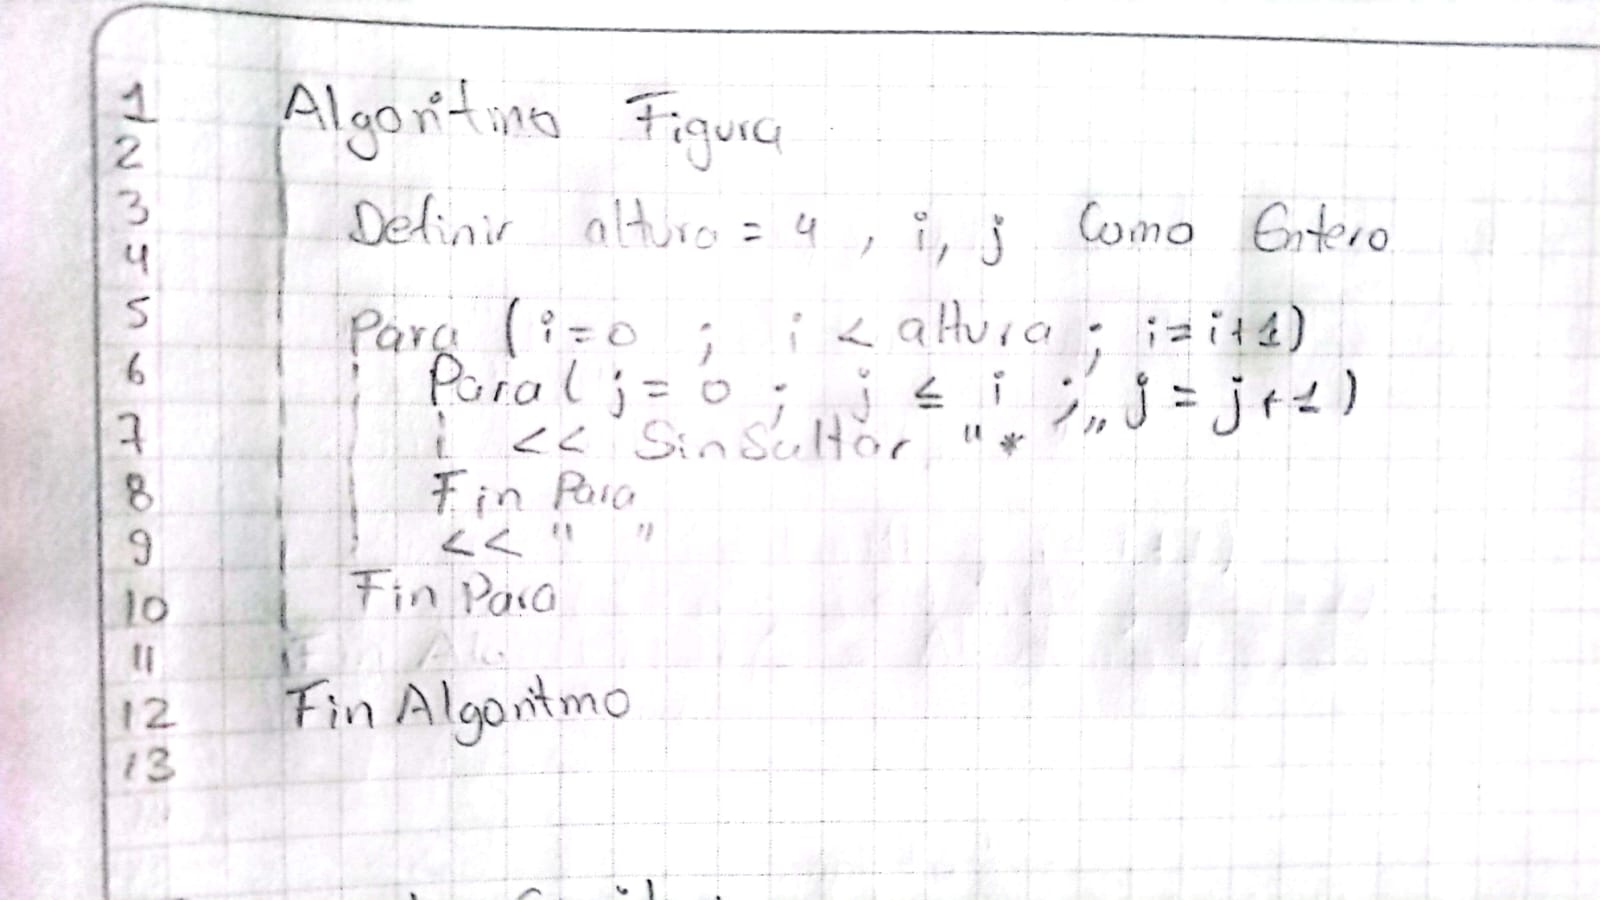 1 Algoritmo Figura
2
3 Definir altura = 4 , i, j Como Entero
4
5 Para ( i=0 ; i < altura ; i=i+1)
6 Para ( j = 0 ; j ≤ i ; j = j+1 )
7 << SinSaltar "* "
8 Fin Para
9 << " "
10 Fin Para
11
12 Fin Algoritmo
13